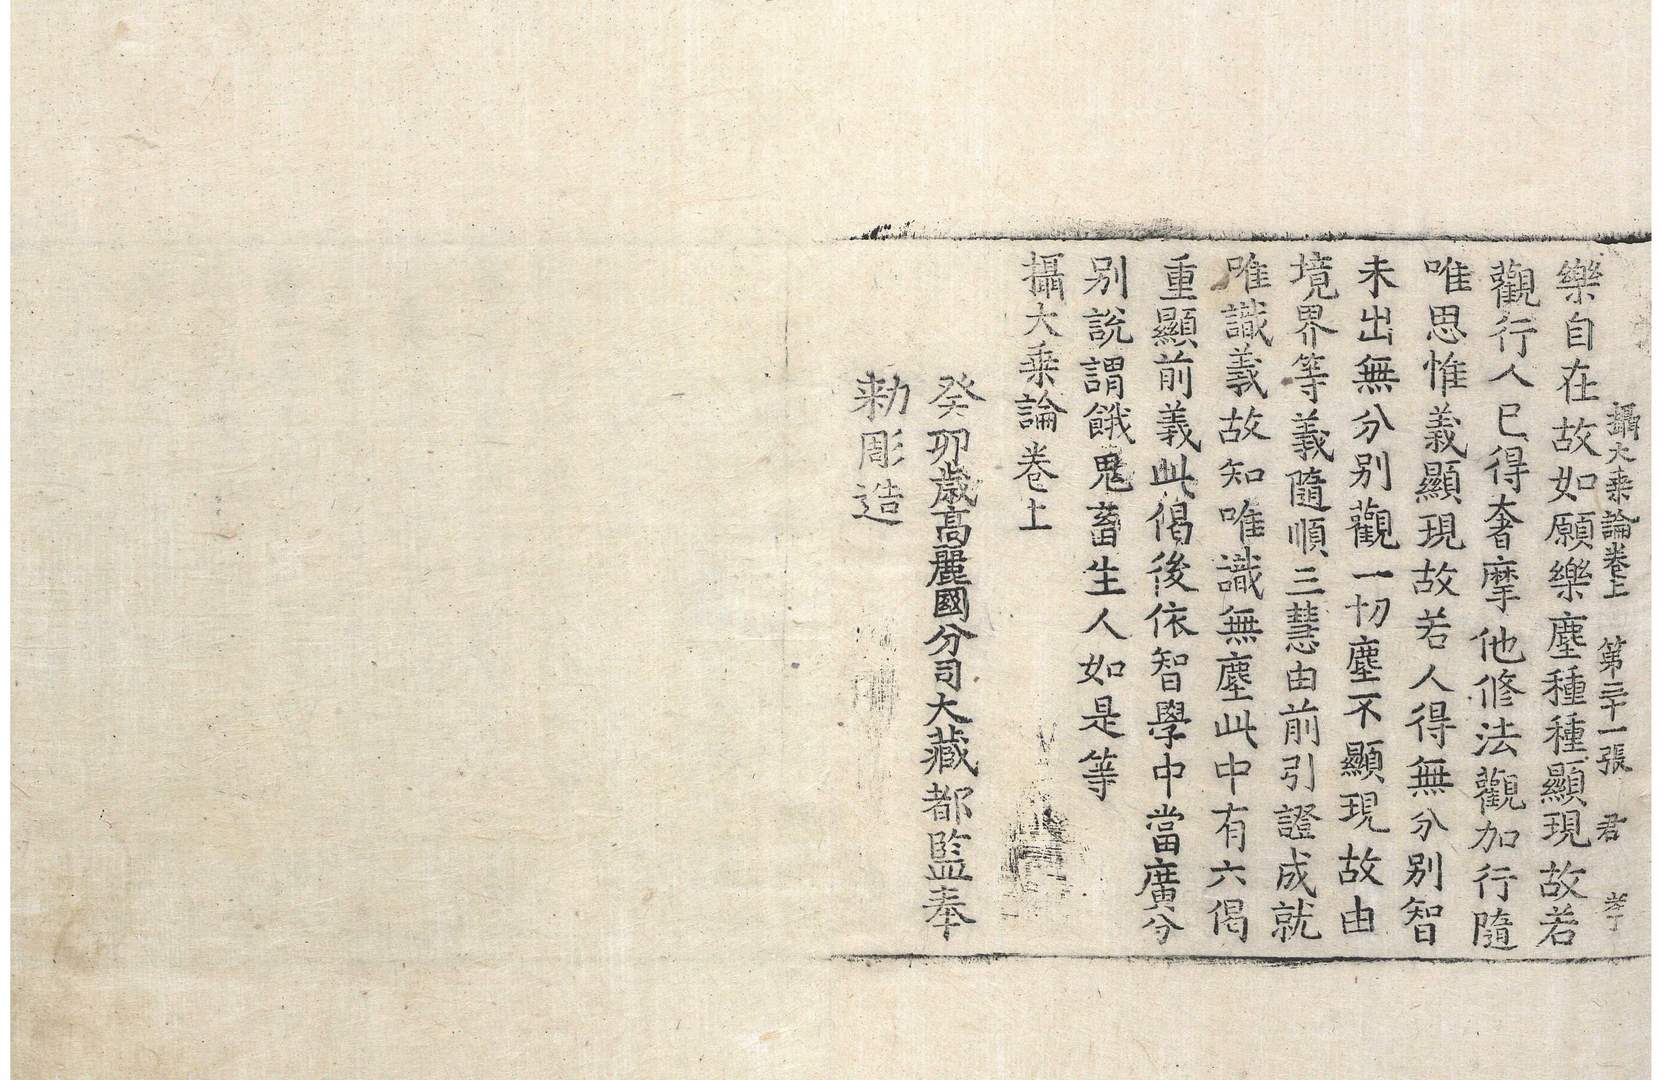 攝大乗論卷上 第三十一張 君
樂自在故如願樂塵種種顯現故若
觀行人已得奢摩他修法觀加行隨
唯思惟義顯現故若人得無分別智
未出無分別觀一切塵不顯現故由
境界等義隨順三慧由前引證成就
唯識義故知唯識無塵此中有六偈
重顯前義此偈後依智學中當廣分
別說謂餓鬼畜生人如是等
攝大乗論卷上
癸卯歲高麗國分司大藏都監奉
勅彫造